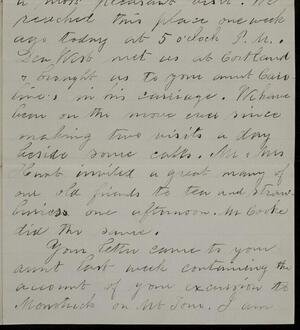 a most pleasant visit. We
reached this place one week
ago today at 5 o'clock P.M.
Dea. West met us at Cortland
& brought us to your aunt Caro
line's in his carriage. We have
been on the move ever since
making two visits a day
beside some calls. Mr. & Mrs
Hunt invited a great many of
our old friends to tea and straw
berries one afternoon. Mr Cooke
did the same.
Your letter came to your
aunt last week containing the
account of your excursion to
on Mt Tom. I am